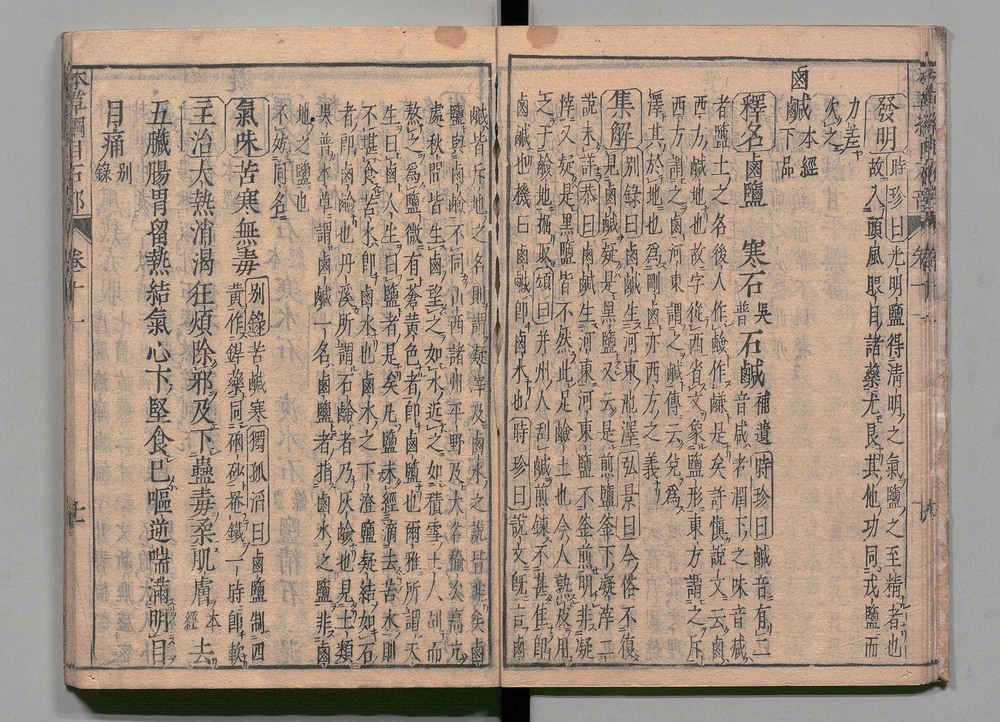 發明時珍曰光明鹽得清明之氣鹽之至精者也
故入頭風眼目諸藥尤良其他功同戎鹽而
力差
次之
鹵鹹本經
下品
釋名鹵鹽 寒石吳普石鹹補遺時珍曰鹹音有二
音咸者潤下之味音
者鹽土之名後人作鹼作鹻是矣許慎說文云鹵
西方鹹地也故字從西省文象鹽形東方謂之斥
西方謂之鹵河東謂之鹹傳云兌為
澤其於地也為剛鹵亦西方之義
集解别錄曰鹵鹹生河東池澤弘景曰今俗不復
見鹵鹹疑是黑鹽又云是煎鹽釜下凝滓二
說未詳恭曰鹵鹹生河東河東鹽不釜煎明非凝
滓又疑是黑鹽皆不然此是鹼土也今人熟皮用
之于鹼地掘取頌曰并州人刮鹹煎鍊不甚佳即
鹵鹹也機曰鹵鹹即鹵水也時珍曰說文既言鹵
鹹皆斥地之名則謂凝滓及鹵水之說皆非矣鹵
鹽與鹵鹼不同山西諸州平野及大谷榆次高亢
處秋間皆生鹵望之如水近之如積雪土人刮而
熬之為鹽微有蒼黄色者即鹵鹽也爾雅所謂天
生曰鹵人生曰鹽者是矣凡鹽未經滴去苦水則
不堪食苦水即鹵水也鹵水之下澄鹽凝結如石
者即鹵鹼也丹溪所謂石鹼者乃灰鹼也見土類
吳普本草謂鹵鹹一名鹵鹽者指鹵水之鹽非鹵
地之鹽也
不妨同名
氣味苦寒無毒别錄苦鹹寒獨孤滔曰鹵鹽制四
黄作銲藥同硇砂罨鐵一時即軟
主治大熱消渴狂煩除邪及下蠱毒柔肌膚本經去
五臟腸胃留熱結氣心下堅食已嘔逆喘滿明目
目痛别錄
本草綱目石部 卷十一 十一